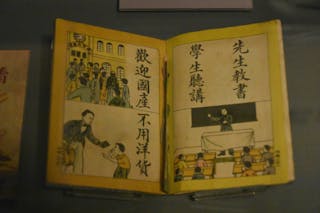 先生教書
學生聽講
歡迎國産
不用洋货